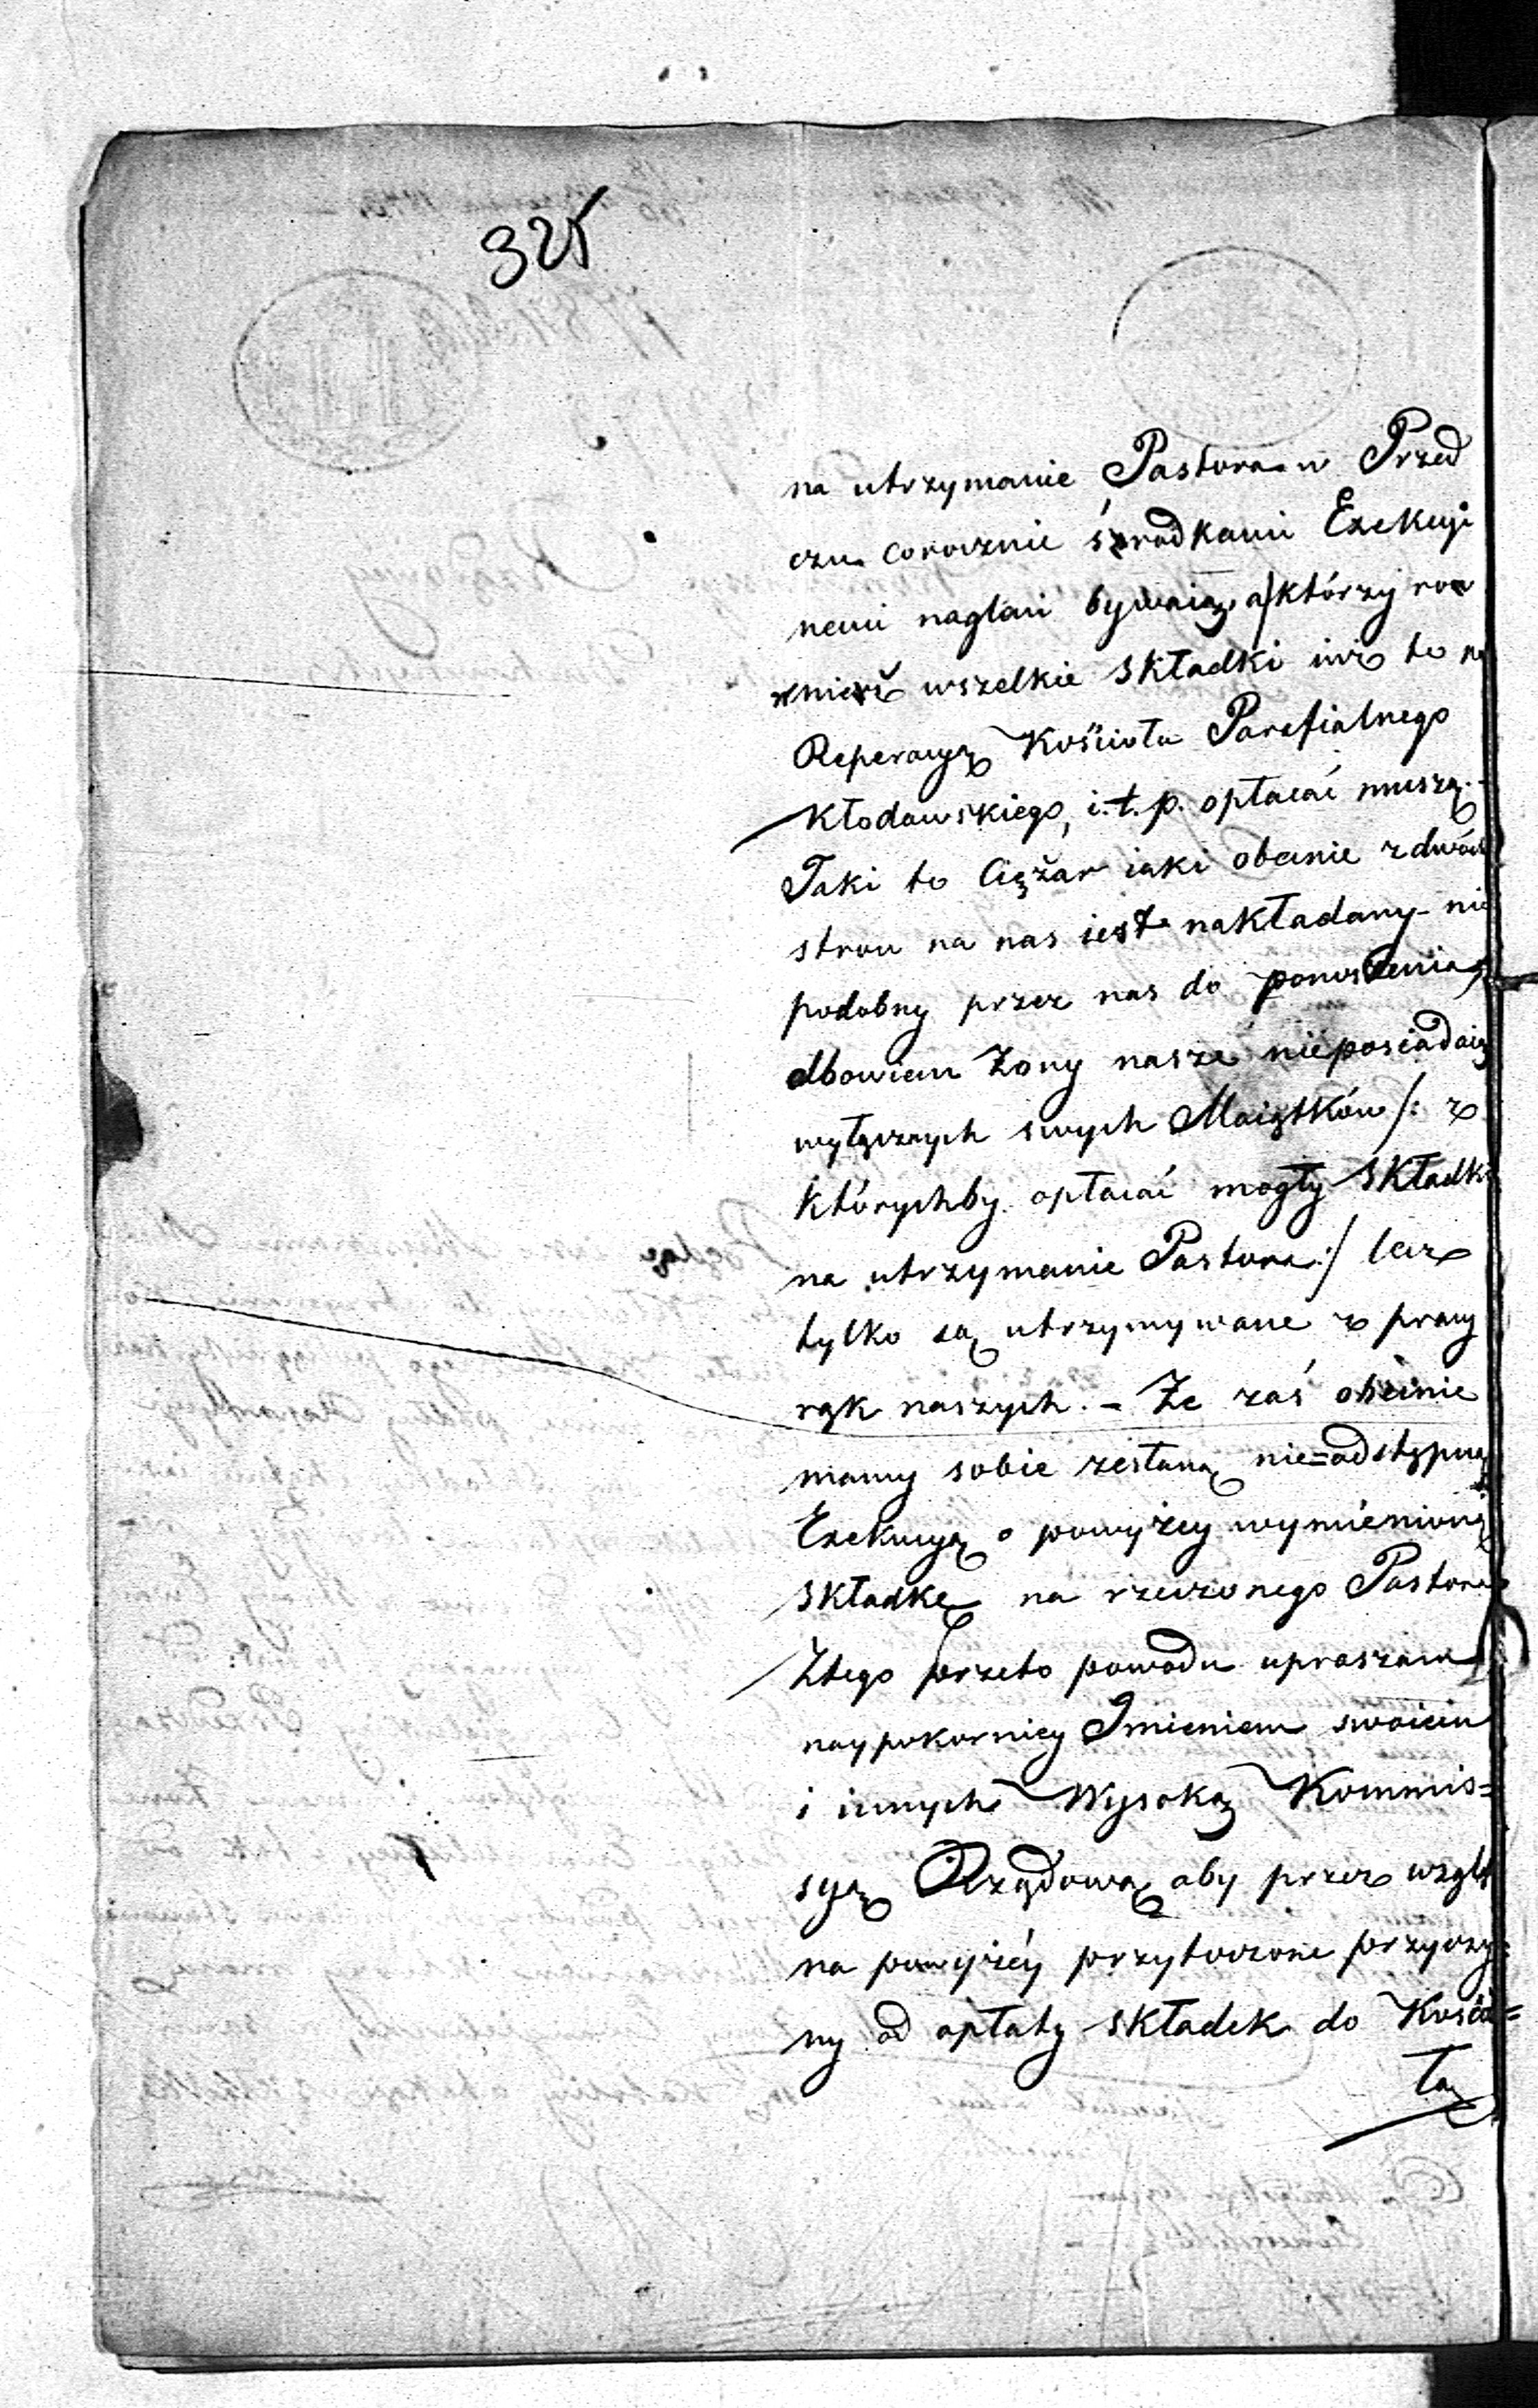 325
na utrzymanie Pastora w Przed
czu corocznie śzrodkami Exekuji
nemi naglani bywaią, a którzy rów
wnierz wszelkie składki iuż to na
Reperacyą Kościoła Parafialnego
Kłodawskiego, i.t.p. opłacać muszą.-
Taki to Ciężar iaki obecnie z dwóch
stron na nas iest nakładany - nie
podobny przez nas do ponoszenia,
albowiem Żony nasze nieposiadaią
wyłącznych swych Maiątków /: z
którychby opłacać mogły składki
na utrzymanie Pastora :/ lecz
tylko są utrzymywane z pracy
rąk naszych. - Że zaś obecnie
mamy sobie zesłaną nie=odstępną
Exekucyą o powyżey wymienioną
składkę na rzeczonego Pastora
Ztego przeto powodu upraszam
naypokorniey Imieniem swoiem
i innych Wysoką Kommis=
syą Rządową aby przez wzglą
na powyżéy przytoczone przyczy=
ny od opłaty składek do Kościo=
ła